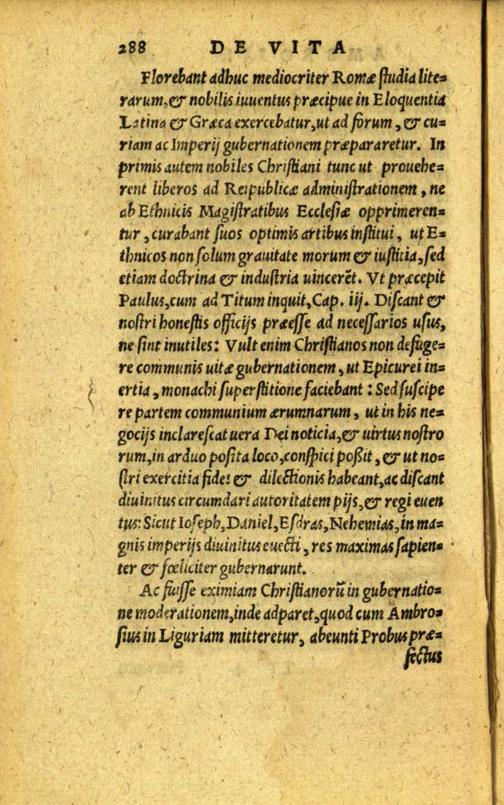 288 DE VITA
Florebant adhuc mediocriter Romæ studia lite=
rarum, & nobilis iuuentus præcipue in Eloquentia
Latina & Græca exercebatur, ut ad forum, & cu=
riam ac Imperij gubernationem præpararetur. In
primis autem nobiles Christiani tunc ut prouehe=
rent liberos ad Reipublicæ administrationem, ne
ab Ethnicis Magistratibus Ecclesiæ opprimeren=
tur, curabant suos optimis artibus institui, ut E=
thnicos non solum grauitate morum & iustitia, sed
etiam doctrina & industria uincerēt. Vt præcepit
Paulus, cum ad Titum inquit, Cap. iij. Discant &
nostri honestis officijs præesse ad necessarios usus,
ne sint inutiles: Vult enim Christianos non defuge=
re communis uitæ gubernationem, ut Epicurei in=
ertia, monachi superstitione faciebant: Sed suscipe
re partem communium ærumnarum, ut in his ne=
gocijs inclarescat uera Dei noticia, & uirtus nostro
rum, in arduo posita loco, conspici poßit, & ut no=
stri exercitia fidei & dilectionis habeant, ac discant
diuinitus circumdari autoritatem pijs, & regi euen
tus: Sicut Ioseph, Daniel, Esdras, Nehemias, in ma=
gnis imperijs diuinitus euecti, res maximas sapien=
ter & fœliciter gubernarunt.
Ac fuisse eximiam Christianorū in gubernatio=
ne moderationem, inde adparet, quod cum Ambro=
sius in Liguriam mitteretur, abeunti Probus præ=
fectus